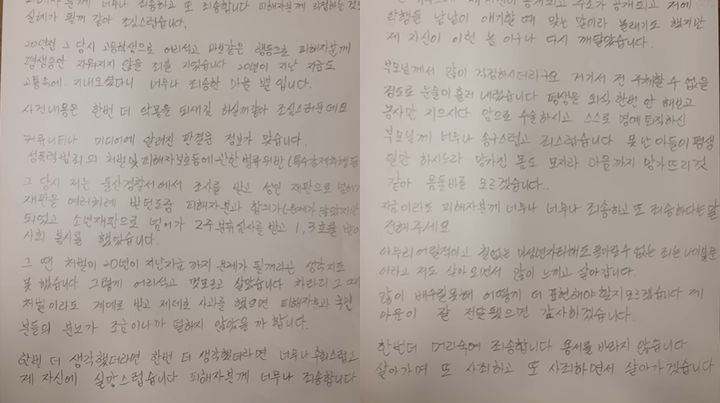 피해자분께 너무나 죄송하고 또 죄송합니다 피해자분께
실례가 될까 같아 조심스럽습니다.
20년전 그 당시 고등학생으로 어리석고 바보같은 행동으로 피해자분께
평생동안 지워지지 않을 죄를 지었습니다 20년이 지난 지금도
고통속에 지내오셨다니 너무나 죄송한 마음 뿐입니다.
사건내용은 한번 더 악몽을 되새김 하실까같아 조심스러운데요
커뮤니티나 미디어에 알려진 판결문 정보가 맞습니다.
성폭력범죄의 처벌 및 피해자보호등에 관한 법률위반
그 당시 저는 울산경찰서에서 조사를 받고 성인 재판으로 넘어가
재판을 여러차례 받던도중 피해자분과 합의가
되었고 소년재판으로 넘어가 2주분류심사를 받고 1,3호를 받아
사회 봉사를 했었습니다.
그 땐 처벌이 20년이 지난지금 까지 문제가 될꺼라는 생각지도
못 했습니다 그렇게 어리석고 멋모르고 살았습니다 차라리 그 때
처벌이라도 계대로 받고 제대로 사과를 했으면 피해자분과 국민
분들의 분노가 조금이나마 덜하지 않았을까 합니다.
한번 더 생각했더라면 한번 더 생각했더라면 너무나 후회스럽고
제 자신에 실망스럽습니다 피해자분께 너무나 죄송합니다
공개되고 저에
악행을 낱낱이 얘기할 때 맞는 말이라 놀래기도 했지만
제 자신이 이런 놈 이구나 다시 깨달았습니다.
부모님께서 많이 걱정하시더라구요 거기서 전 주체할 수 없을
정도로 눈물이 흘러 내렸습니다 평생을 외식 한번 안 해보고
농사만 지으시다 암으로 수술하시고 스스로 명예 퇴직하신
부모님께 너무나 송구스럽고 죄스럽습니다 못난 아들이 평생
일만 하시느라 망가진 몸도 모자라 마음까지 망가뜨리것
같아 몸둘바를 모르겠습니다..
지금이라도 피해자분께 너무나 너무나 죄송하고 또 죄송하다는 말
전해주세요
아무리 어렸적이고 철없는 미성년자라해도 용서받을수 없는 죄는 나이불문
이라고 저도 살아오면서 많이 느끼고 살아갑니다.
많이 배우질못해 어떻게 더 표현해야할지모르겠습니다 제
마음이 잘 전달됐으면 감사하겠습니다.
한번더 머리숙여 죄송합니다 용서를 바라지 않습니다
살아가며 또 사죄하고 또 사죄하면서 살아가겠습니다